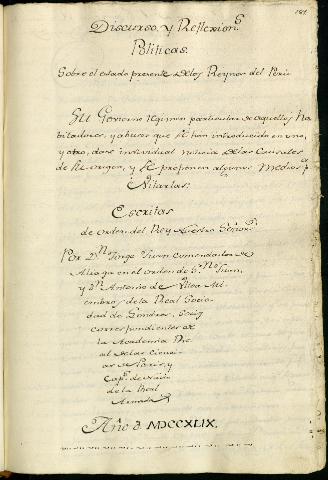 Discurso, y Reflexion.s
Politicas.
Sobre el estado presente de los Reynos del Perù
Su Govierno regimen particular de aquellos Ha
bitadores, y abusos que se han introducido en uno,
y otro, dase individual noticia de las Causales
de su origen, y se proponen algunos medios p.a
evitarlas.
Escritas
de orden del Rey Nuestro Señor
Por D.n Jorge Juan comendador de
Aliaga en el orden de S.n Juan,
y D.n Antonio de Ulloa Mi
embros de la Real Socie
dad de Londres,
correspondientes de
la Academia Re
al de las Cienci
as de Paris, y
Cap.s de Navio
de la Real
Armada
Año de MDCCXLIX.